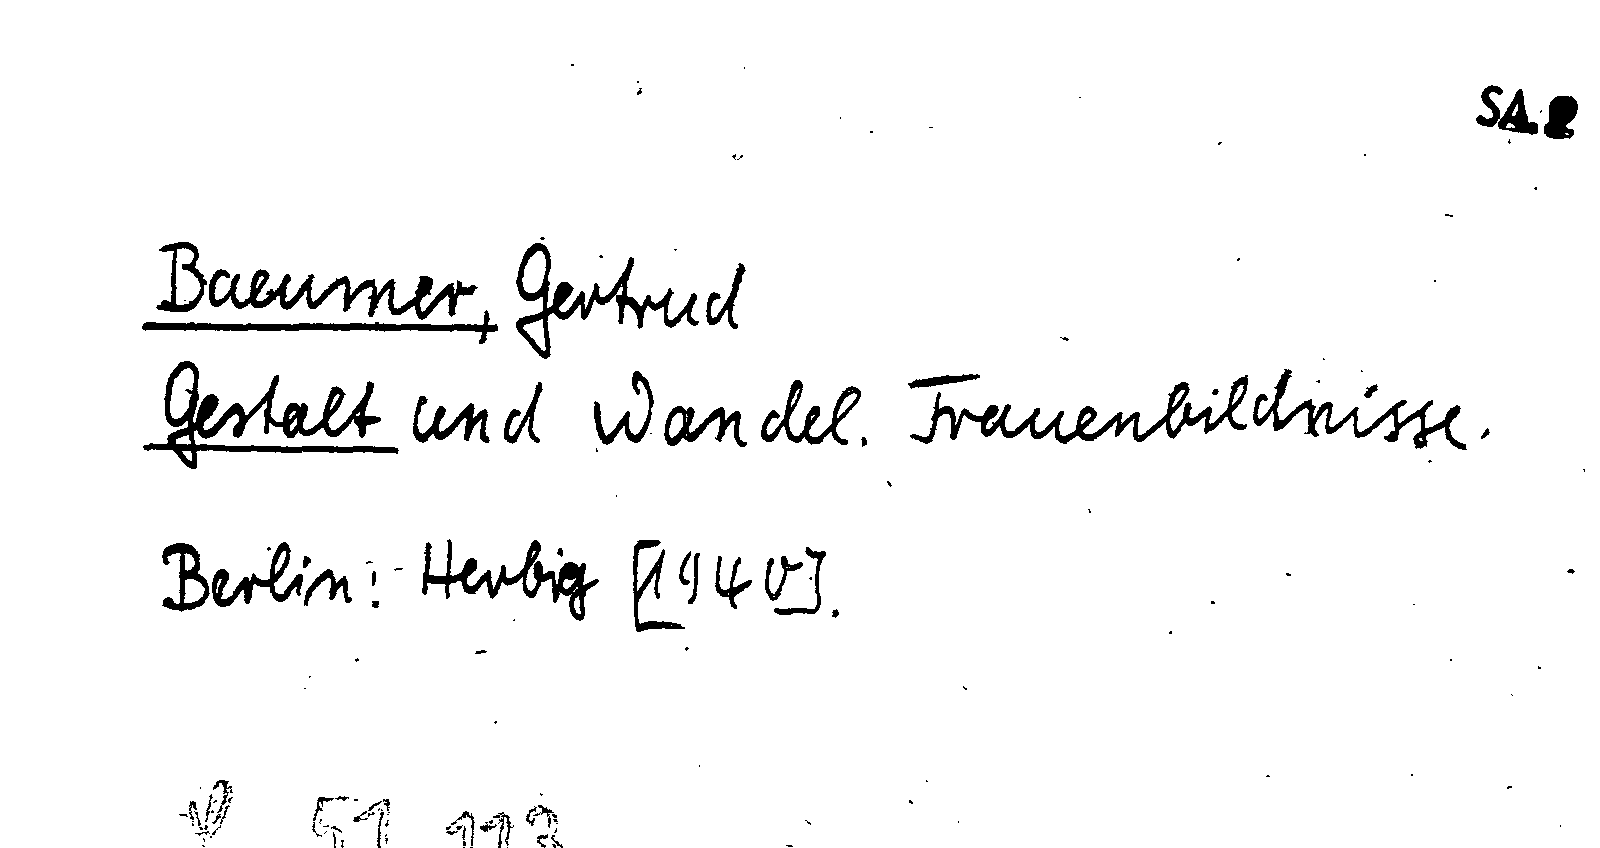 SA. 2
Baeumer, Gertrud
Gestalt und Wandel. Frauenbildnisse.
Berlin: Herbig [1940].
51 113